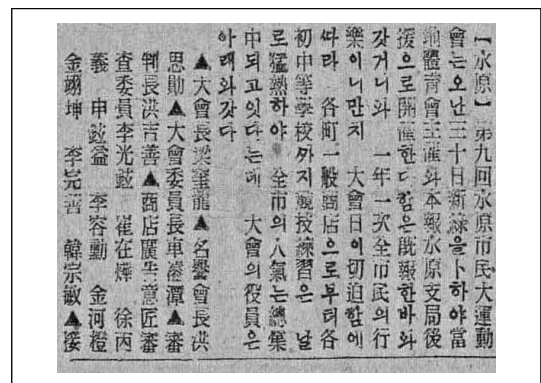 【水原】第九回水原市民大運動
會는오난三十日新綠을卜하야當
地體育會主催와本報水原支局後
援으로開催한다함은旣報한바와
갓거니와 一年一次全市民의行
樂이니만치 大會日이切迫함에
따라 各町一般商店으로부터各
初中等學校까지競技練習은 날
로猛熱하야 全市의人氣는總集
中되고잇다는데 大會의役員은
아래와갓다
▲大會長梁聖龍▲名譽會長洪
思勛▲大會委員長車濬潭▲審
判長洪吉善▲商店廣告意匠審
査委員李光鉉 崔在燁 徐丙
義 申鉉益 李容勳 金河橙
金翊坤 李完善 韓宗敏▲接